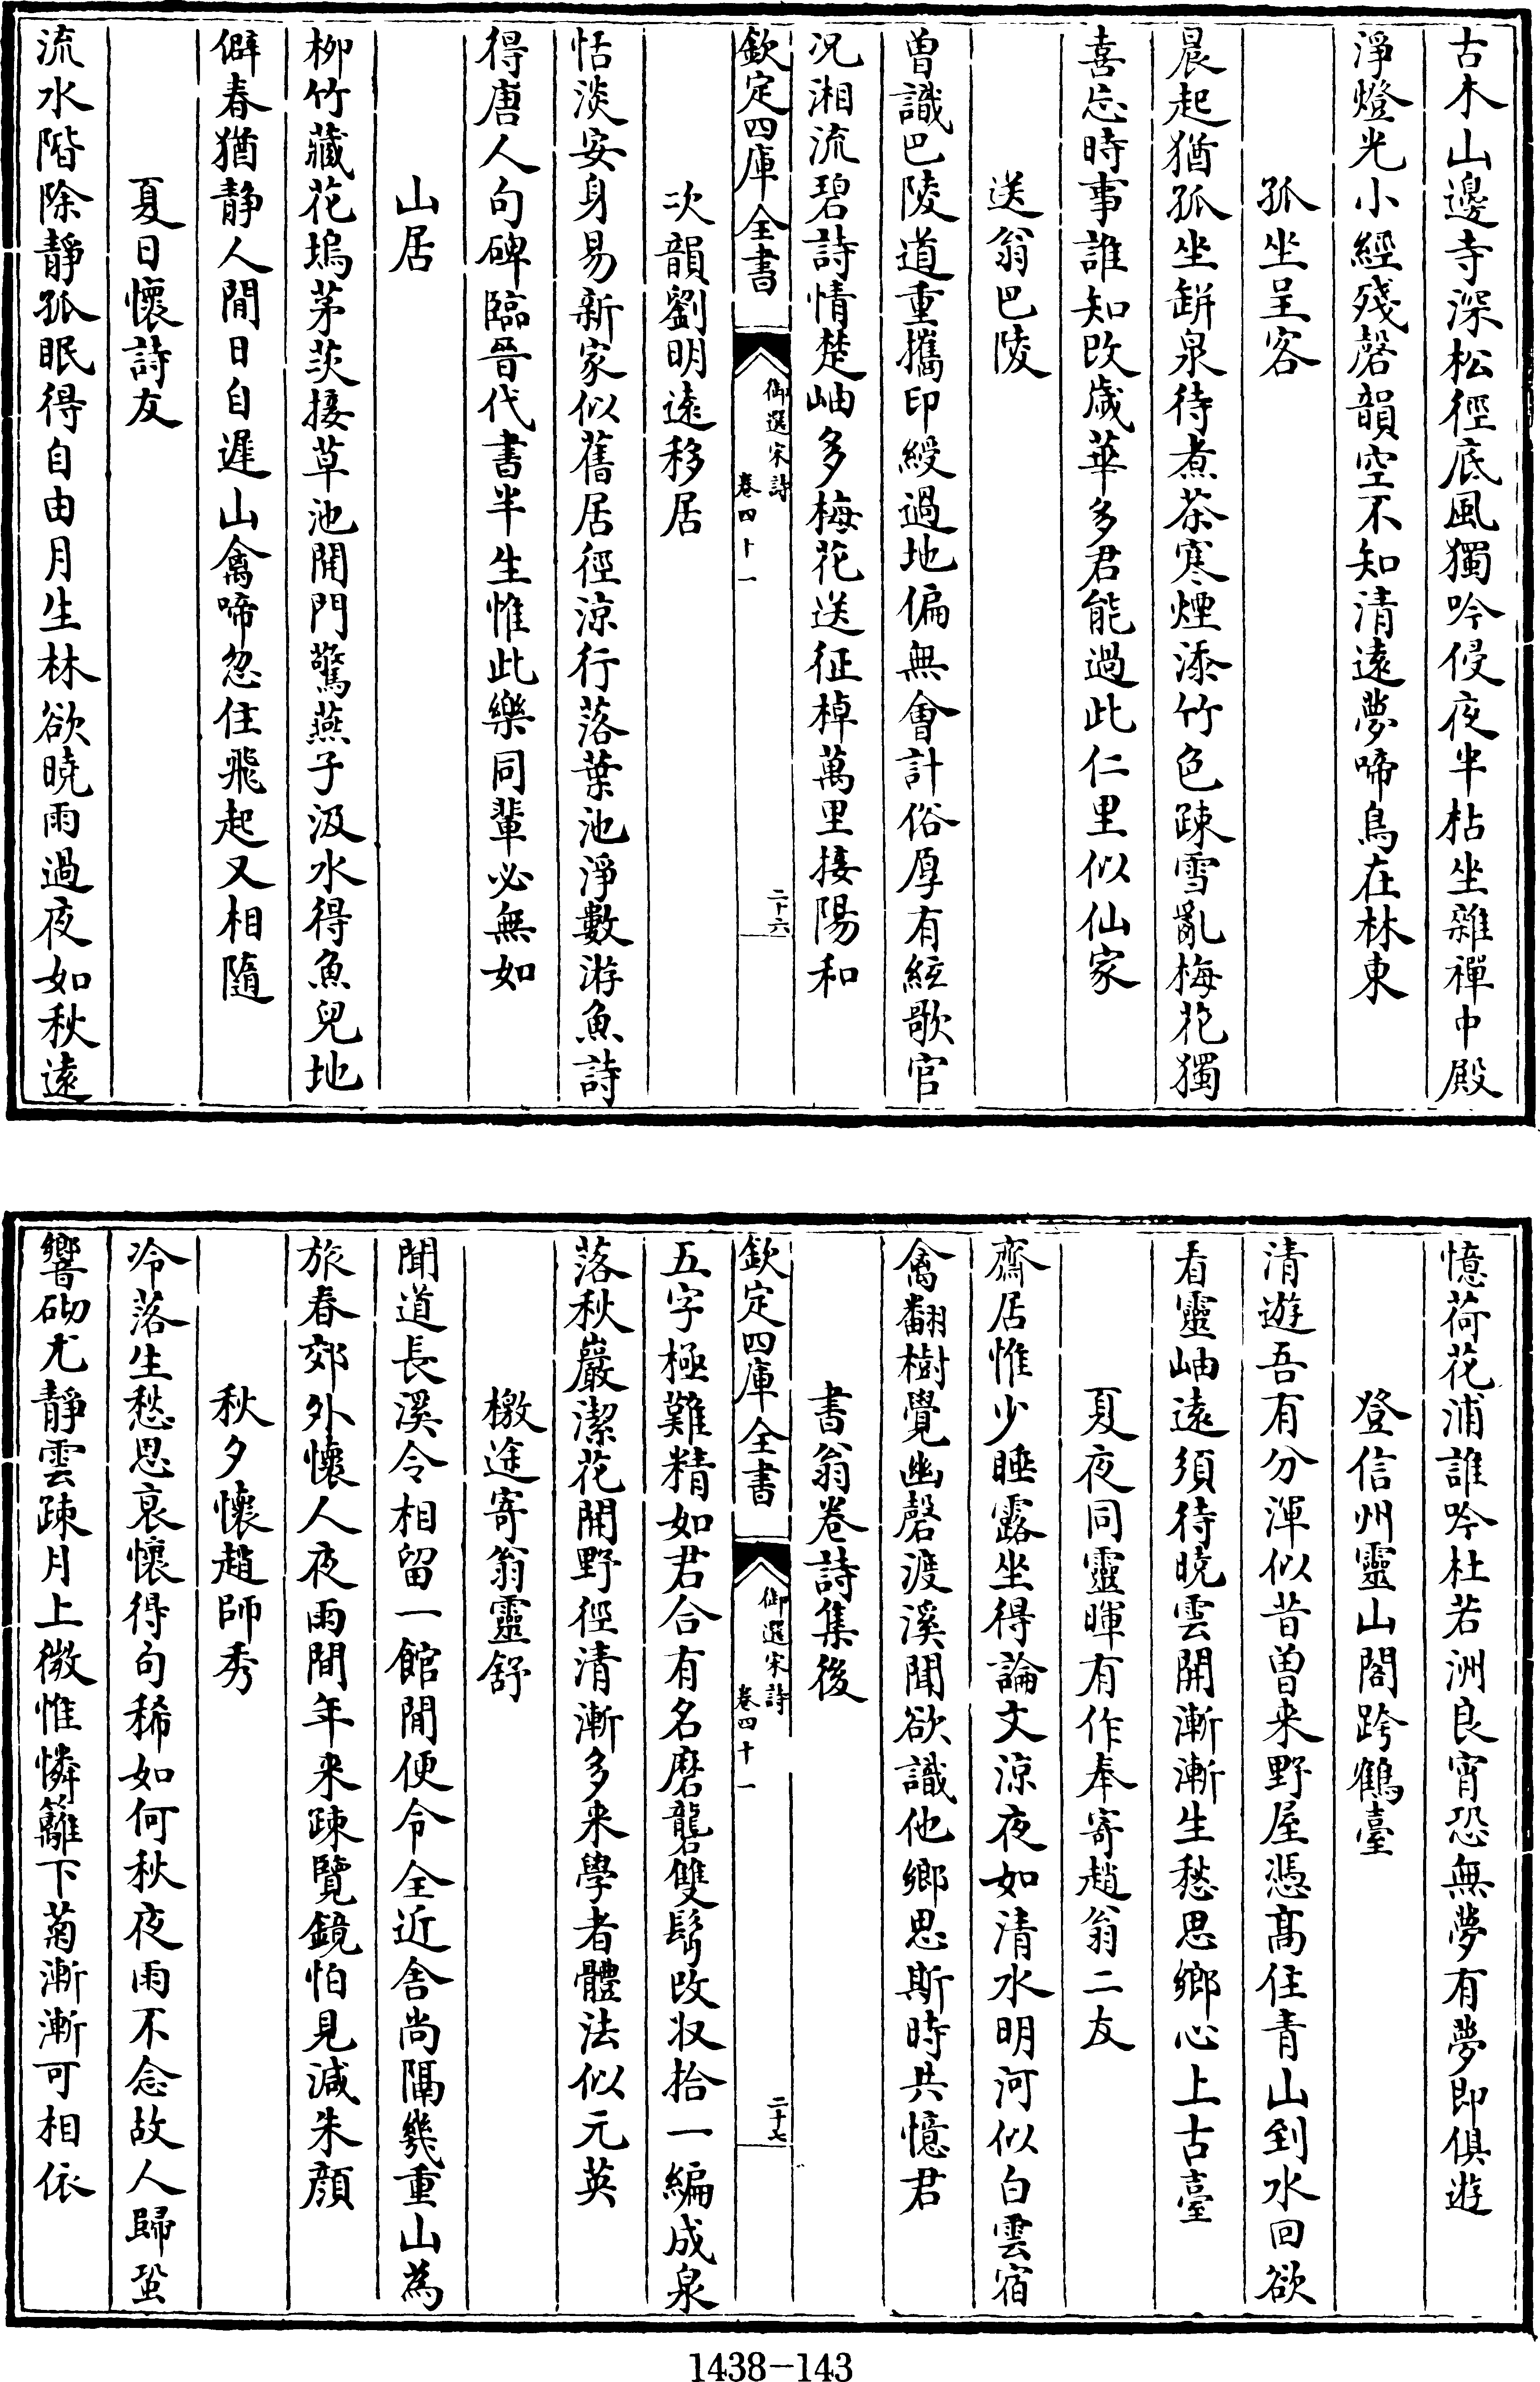 古木山邊寺深松徑底風獨吟侵夜半枯坐雜禪中殿
淨燈光小經殘磬韻空不知清遠夢啼鳥在林東
孤坐呈客
晨起猶孤坐缾泉待煮茶寒煙添竹色疎雪亂梅花獨
喜忘時事誰知改歲華多君能過此仁里似仙家
送翁巴陵
曾識巴陵道重攜印綬過地偏無會計俗厚有絃歌官
况湘流碧詩情楚岫多梅花送征棹萬里接陽和
欽定四庫全書
御選宋詩
卷四十一
二十六
次韻劉明遠移居
恬淡安身易新家似舊居徑涼行落葉池淨數游魚詩
得唐人句碑臨晉代書半生惟此樂同輩必無如
山居
柳竹藏花塢茅茨接草池開門驚燕子汲水得魚兒地
僻春猶靜人閒日自遲山禽啼忽住飛起又相隨
夏日懷詩友
流水階除靜孤眠得自由月生林欲曉雨過夜如秋遠
憶荷花浦誰吟杜若洲良宵恐無夢有夢即俱遊
登信州靈山閣跨鶴臺
清遊吾有分渾似昔曾来野屋憑髙住青山到水回欲
看靈岫遠須待曉雲開漸漸生愁思鄉心上古臺
夏夜同靈暉有作奉寄趙翁二友
齋居惟少睡露坐得論文涼夜如清水明河似白雲宿
禽翻樹覺幽磬渡溪聞欲識他鄉思斯時共憶君
書翁卷詩集後
欽定四庫全書
御選宋詩
卷四十一
二十七
五字極難精如君合有名磨礱雙鬢改収拾一編成泉
落秋巖潔花開野徑清漸多来學者體法似元英
檄途寄翁靈舒
聞道長溪令相留一館閒便令全近舍尚隔幾重山為
旅春郊外懷人夜雨間年来疎覽鏡怕見減朱顔
秋夕懷趙師秀
冷落生愁思衰懷得句稀如何秋夜雨不念故人歸蛩
響砌尤靜雲疎月上微惟憐籬下菊漸漸可相依
1438-143